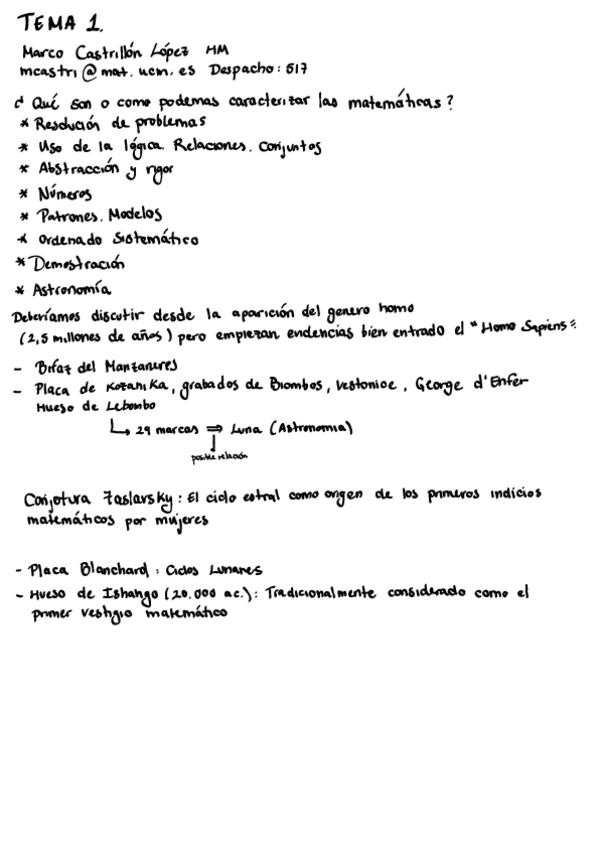 TEMA 1.
Marco Castrillón López HM
mcastri@mat.ucm.es Despacho: 517
¿Qué son o como podemas caracterizar las matemáticas?
* Resolución de problemas
* Uso de la lógica. Relaciones. Conjuntos
* Abstracción y rigor
* Números
* Patrones. Modelos
* Ordenado Sistemático
* Demostración
* Astronomía
Deberíamos discutir desde la aparición del genero homo
(2,5 millones de años) pero empiezan evidencias bien entrado el "Homo Sapiens".
- Bifaz del Manzanares
- Placa de Kozanika, grabados de Blombos, vestonice, George d'Enfer
Hueso de Lebombo
↳ 29 marcas ⇒ Luna (Astronomia)
↓
posible relación
Conjetura Zaslavsky: El ciclo estral como origen de los primeros indicios
matemáticos por mujeres
- Placa Blanchard: Ciclos Lunares
- Hueso de Ishango (20.000 a.c.): Tradicionalmente considerado como el
primer vestigio matemático